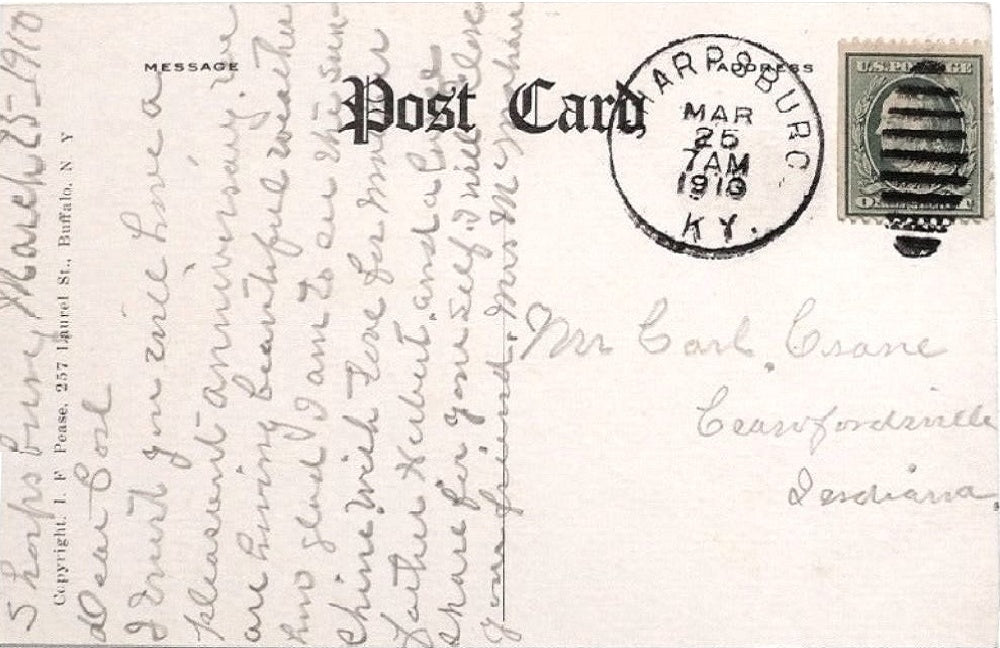 MESSAGE
Post Card
ADDRESS
SHARPSBURG
MAR
25
7AM
1910
KY.
U.S. POSTAGE
Mr Carl Crane
Crawfordsville
Indiana
Copyright. I. F Pease, 257 Laurel St., Buffalo, N Y
Sharpsburg March 25-1910
Dear Carl
I trust you will have a
pleasant anniversary. we
are having beautiful weather
how glad I am to see the sun-
shine. With love for
father Hubert, and a
share for your self. I will close
your friend. Mrs